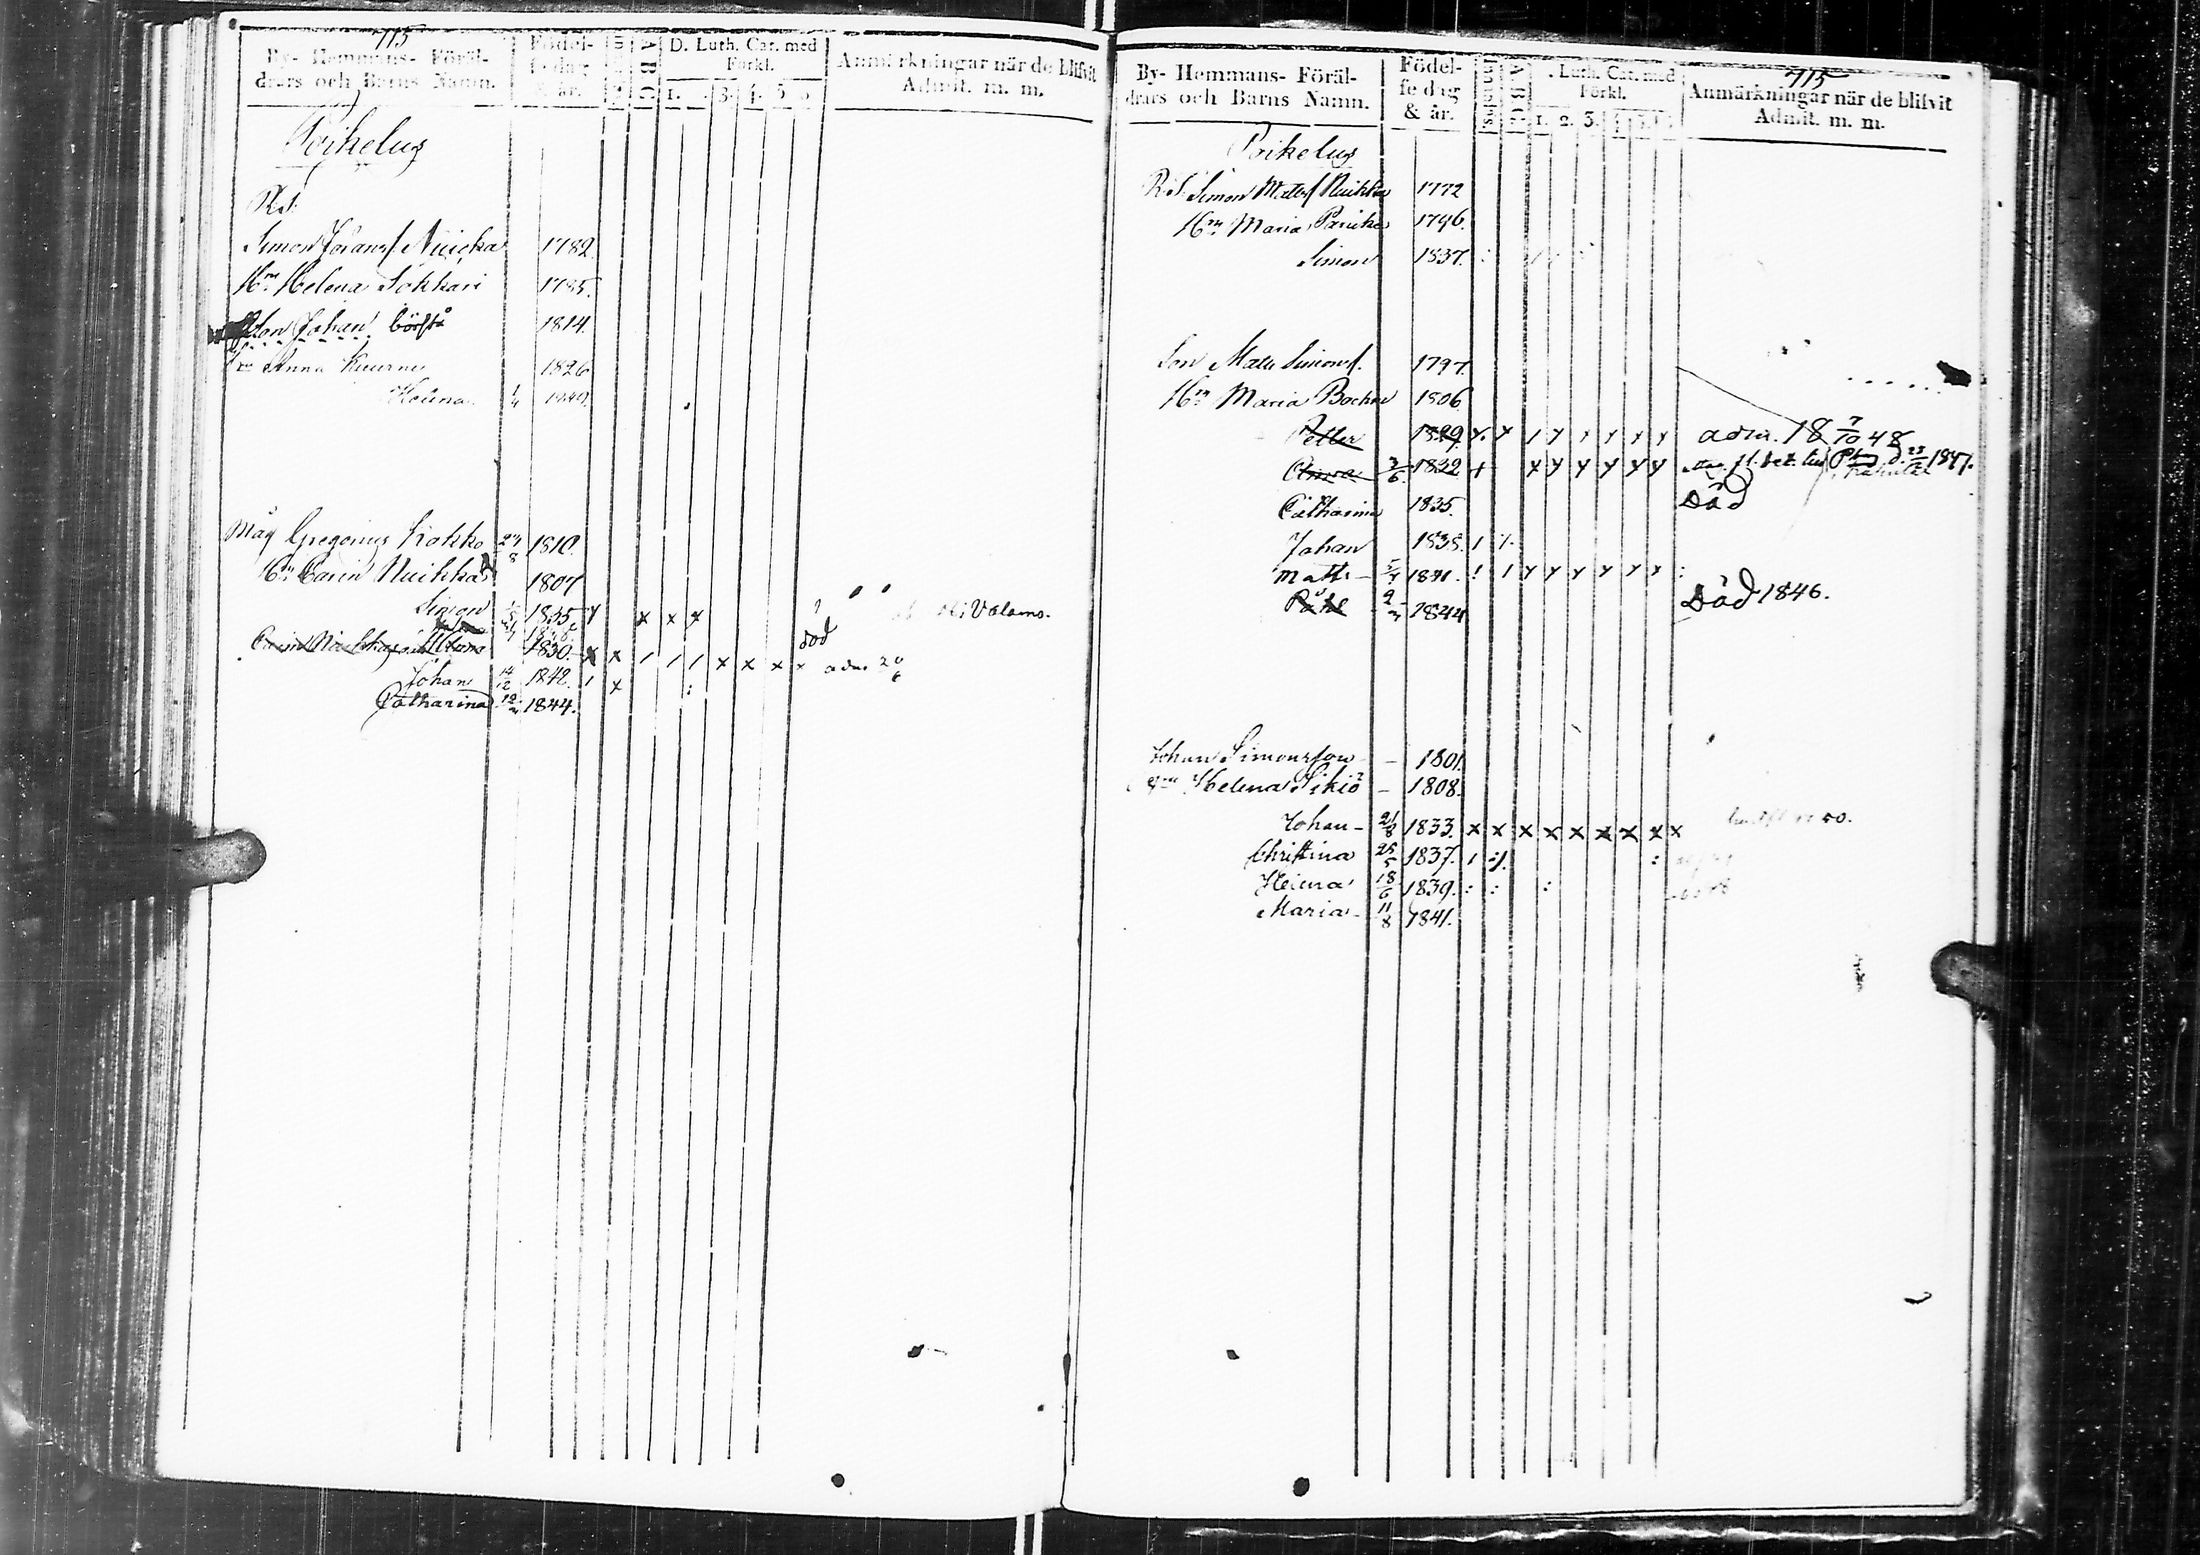 715
By- Hemmans- Föräl-
drars och Barns Namn.
Födel-
se dag
& år.
A B C
D. Luth. Cat. med
Förkl.
1. 3. 4. 5
Anmärkningar när de blifvit
Admit. m. m.
Poikelus
Rs.
Simon Joransf. Nuicka 1782.
Hru Helena Sokkari 1785.
Son Johan börstå 1814.
Hru Anna 1826
Helena 1849.
Måg Gregorius Kokko 24/8 1810.
Hru Carin Nuikka 1807
Simon 1835 Valamo.
död
Anna 1830. x x / / / x x x x adm 20/6
Johan 14/12 1842. / x :
Catharina 1844.
715
By- Hemmans- Föräl-
drars och Barns Namn.
Födel-
se dag
& år.
A B C
. Luth. Cat. med
Förkl.
1. 2. 3.
Anmärkningar när de blifvit
Admit. m. m.
Poikelus
R.S. Simon Matsf Nuikka 1772
Hru Maria 1796.
Simon 1837.
Son Matts Simonsf. 1797.
Hru Maria 1806.
Petter 1829 adm. 18 7/10 48
Anna 3/6 1832 d. 23/ 1847.
Catharina 1835. Död
Johan 1838.
Matts 1841.
Påhl 1844 Död 1846.
Johan Simonsson - 1801.
Hru Helena Sikiö - 1808.
Johan - 21/8 1833. x x x x x x x x x 50.
Christina 25/5 1837.
Helena 18/6 1839.
Maria - 11/8 1841.